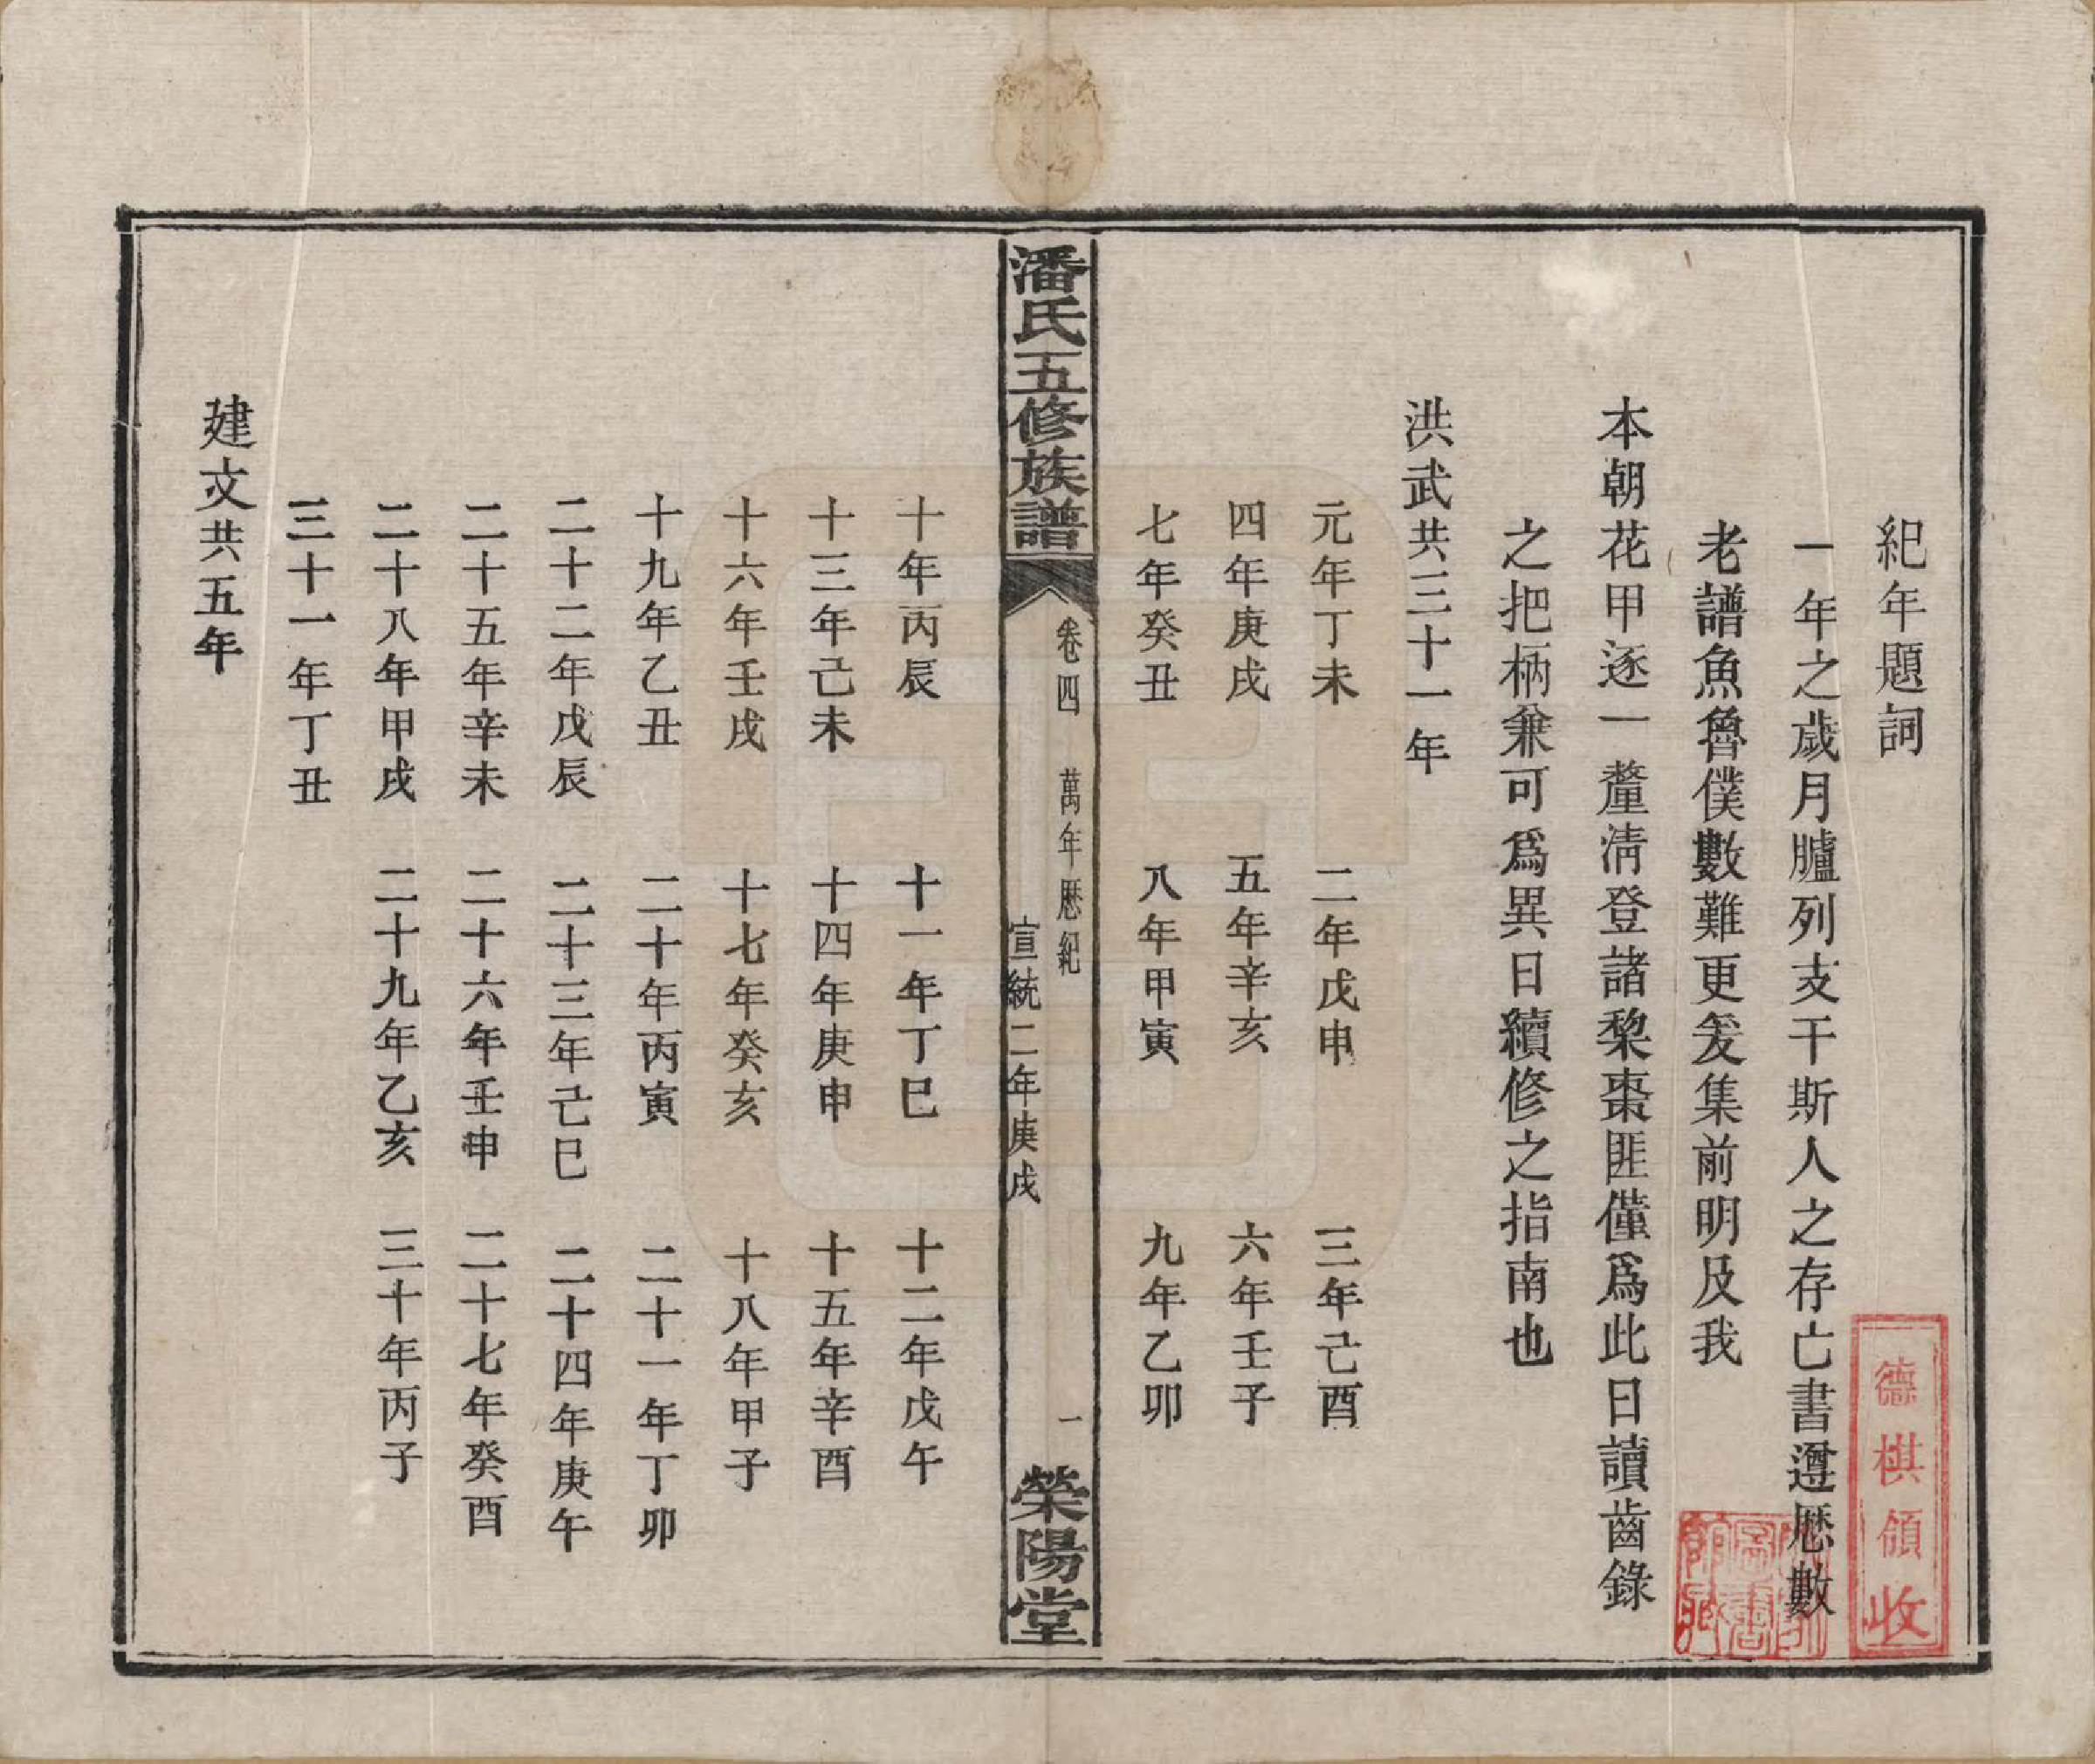 紀年題詞
一年之歲月臚列支干斯人之存亡書遵厯數
老譜魚魯僕數難更爰集前明及我
本朝花甲逐一釐清登諸棃棗匪僅爲此日讀齒錄
之把柄兼可爲異日續修之指南也
洪武共三十一年
元年丁未 二年戊申 三年己酉
四年庚戌 五年辛亥 六年壬子
七年癸丑 八年甲寅 九年乙卯
潘氏五修族譜 卷四 萬年厯紀 一 榮陽堂
宣統二年庚戌
十年丙辰 十一年丁巳 十二年戊午
十三年己未 十四年庚申 十五年辛酉
十六年壬戌 十七年癸亥 十八年甲子
十九年乙丑 二十年丙寅 二十一年丁卯
二十二年戊辰 二十三年己巳 二十四年庚午
二十五年辛未 二十六年壬申 二十七年癸酉
二十八年甲戌 二十九年乙亥 三十年丙子
三十一年丁丑
建文共五年
德棋領收